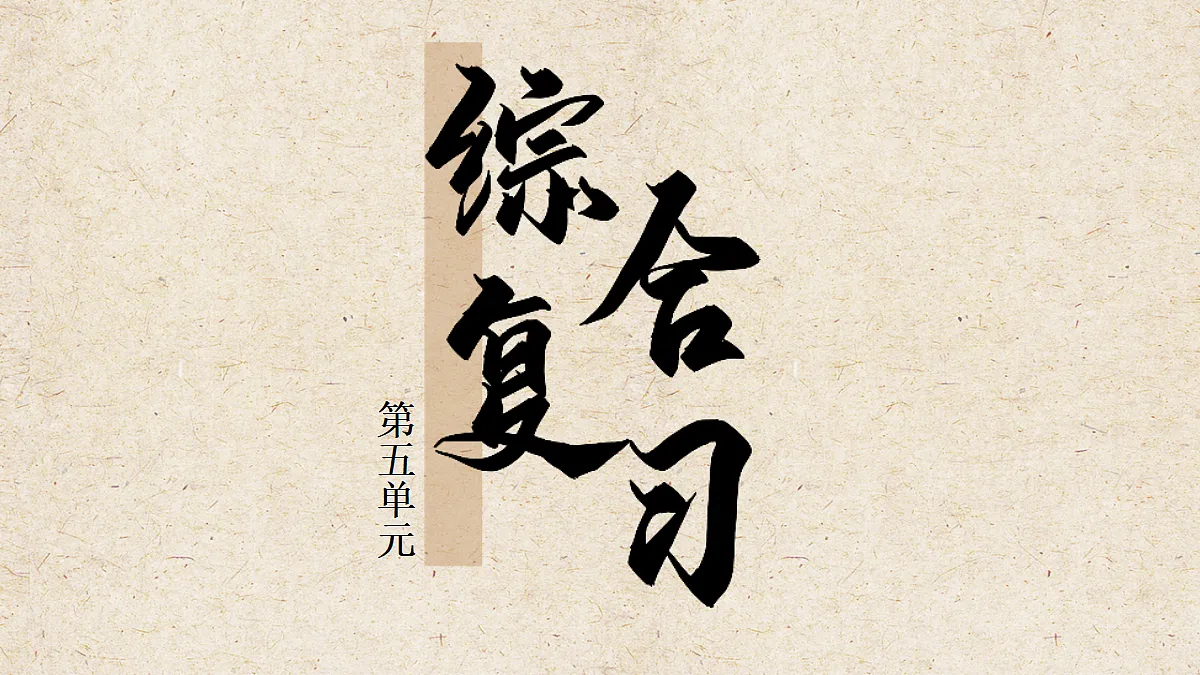 综合
复习
第五单元